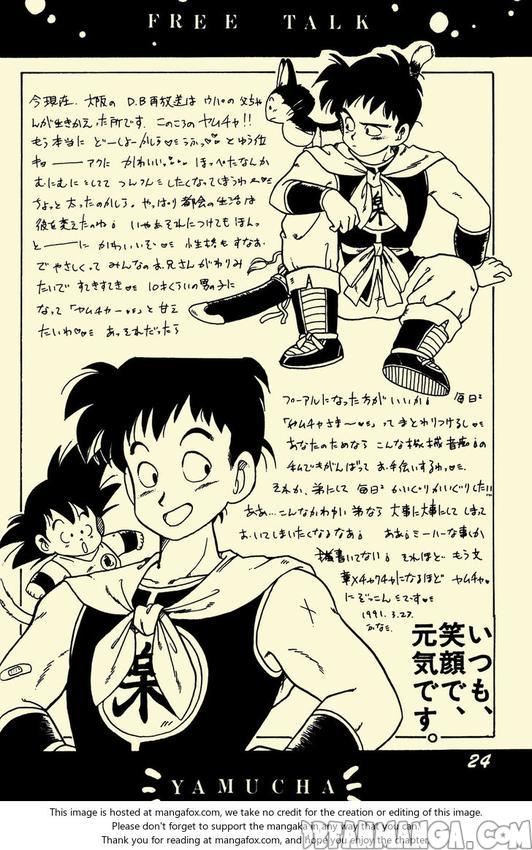 FREE TALK
今現在、大阪のD.B再放送はウパの父ちゃ
んが生きかえった所です。このころのヤムチャ!!
もう本当に どーしよーかしら うふっ とゆう位
かわいい ほっぺたなんか
むにむにとして つんつんとしたくなってしまうわ
ちょっと太ったのかしら。やっぱり都会の生活は
彼を変えたのね。いやあそれにつけてもほん
とーーに かわいいぞ 性格もすなお
でやさしくって みんなのお兄さんがわりみ
たいで すてきすてき 10才くらいの男の子に
なって「ヤムチャー」と甘え
たいわ あっそれだったら
プーアルになった方がいいか。毎日
「ヤムチャさま〜」ってまとわりつけるし
あなたのためなら こんな機械音痴の
私でもがんばって お手伝いするわっ
それか、弟にして毎日 かいぐりかいぐりしたい!!
ああ…こんなかわいい弟なら 大事に大事にしまって
おいてしまいたくなるなあ。ああ。ミーハーな事しか
書いてない。それほど もう文
章メチャクチャになるほど ヤムチャ
にぞっこんです
1991.3.27.
巣
巣
いつも、
笑顔で、
元気です。
24
YAMUCHA
This image is hosted at mangafox.com, we take no credit for the creation or editing of this image.
Please don't forget to support the mangaka in any way that you can!
Thank you for reading at mangafox.com, and hope you enjoy the chapter.
DBFANMANGA.COM